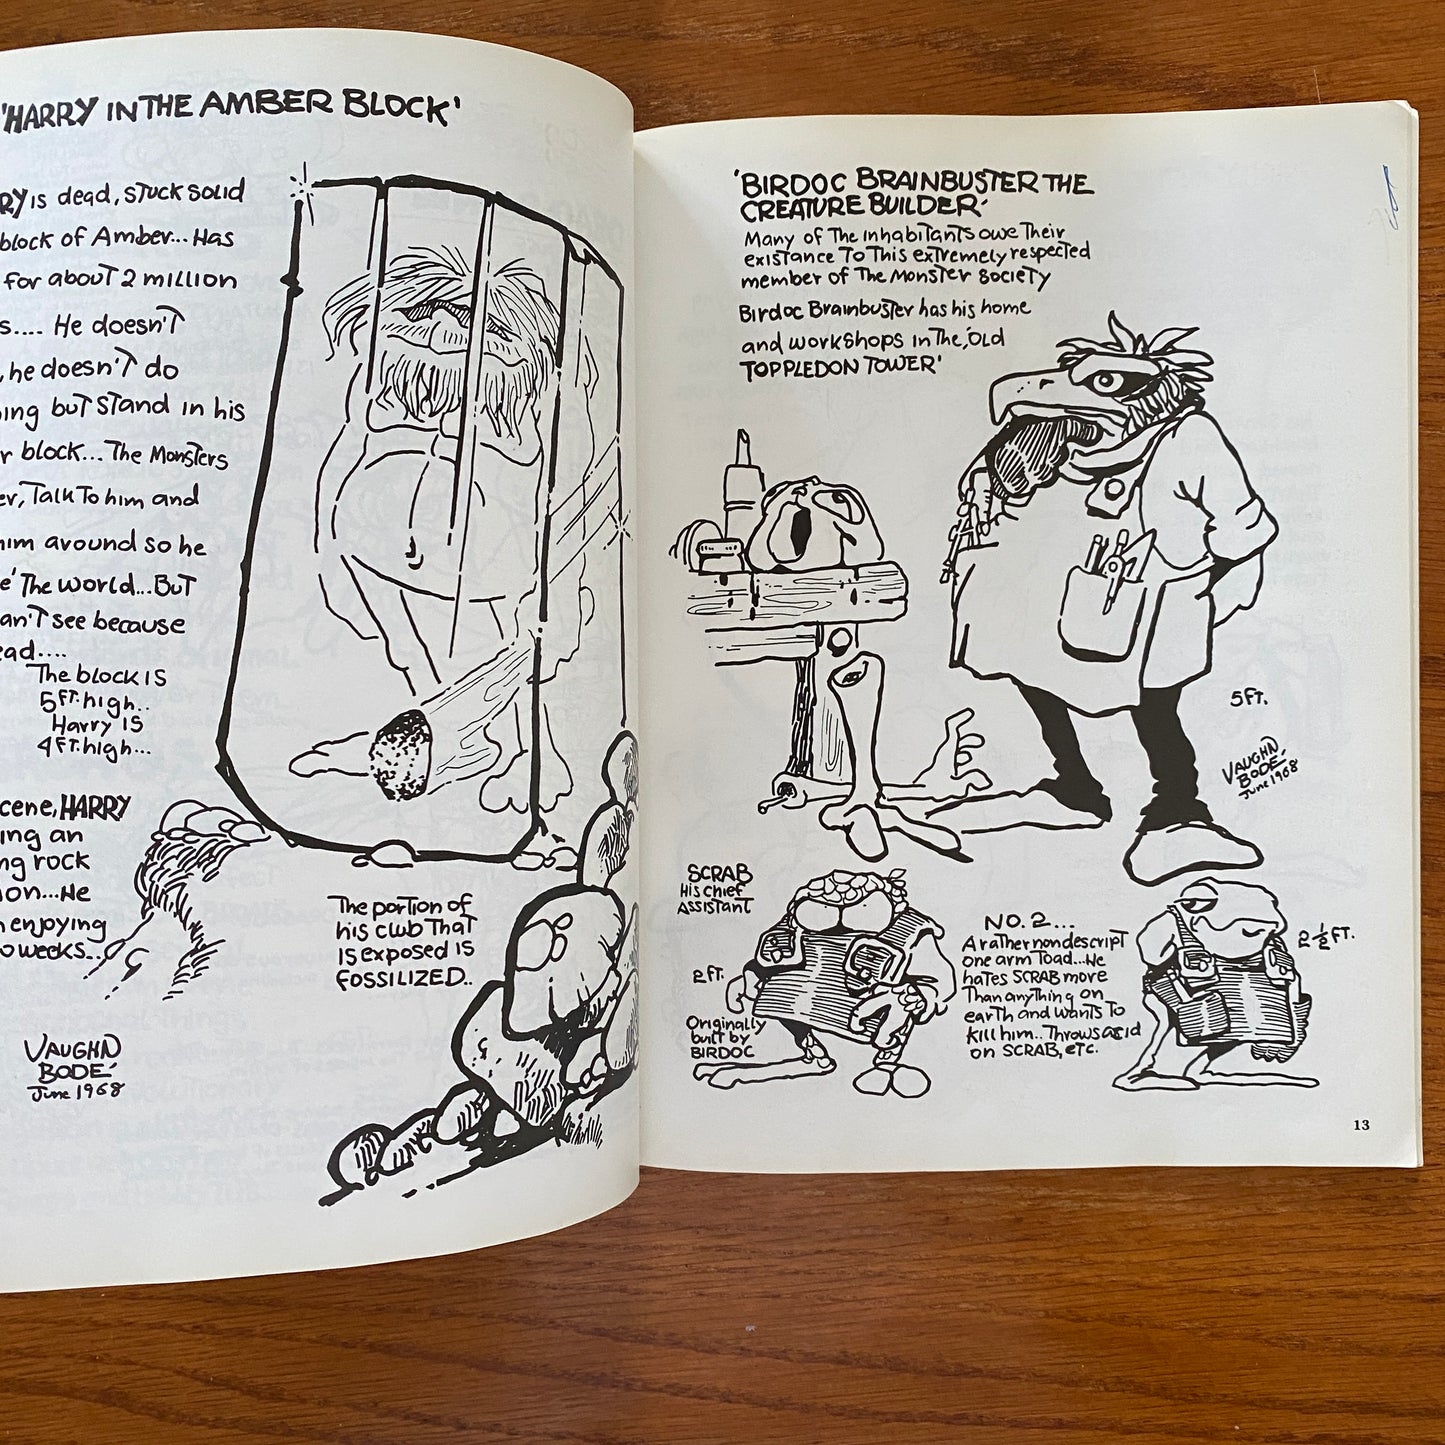 'HARRY IN THE AMBER BLOCK'
RRY is dead, STUCK SOLID
block of Amber... Has
for about 2 million
s.... He doesn't
, he doesn't do
ing but stand in his
r block... The Monsters
er, Talk To him and
him around so he
e' The world... But
an't see because
ead....
The block is
5 FT. high..
Harry is
4 FT. high...
cene, HARRY
ing an
ng rock
ion... He
n enjoying
o weeks...
The portion of
his club That
is exposed is
FOSSILIZED..
VAUGHN
BODE'
June 1968
'BIRDOC BRAINBUSTER THE
CREATURE BUILDER'
Many of The inhabitants owe Their
existance To This extremely respected
member of The Monster Society
Birdoc Brainbuster has his home
and workshops in The, 'Old
TOPPLEDON TOWER'
5 FT.
VAUGHN
BODE'
June 1968
SCRAB
His chief
ASSISTANT
2 FT.
Originally
built by
BIRDOC
NO. 2...
A rather nondescript
one arm Toad... He
hates SCRAB more
Than anything on
earth and wants To
kill him.. Throws acid
on SCRAB, etc.
2 ½ FT.
13